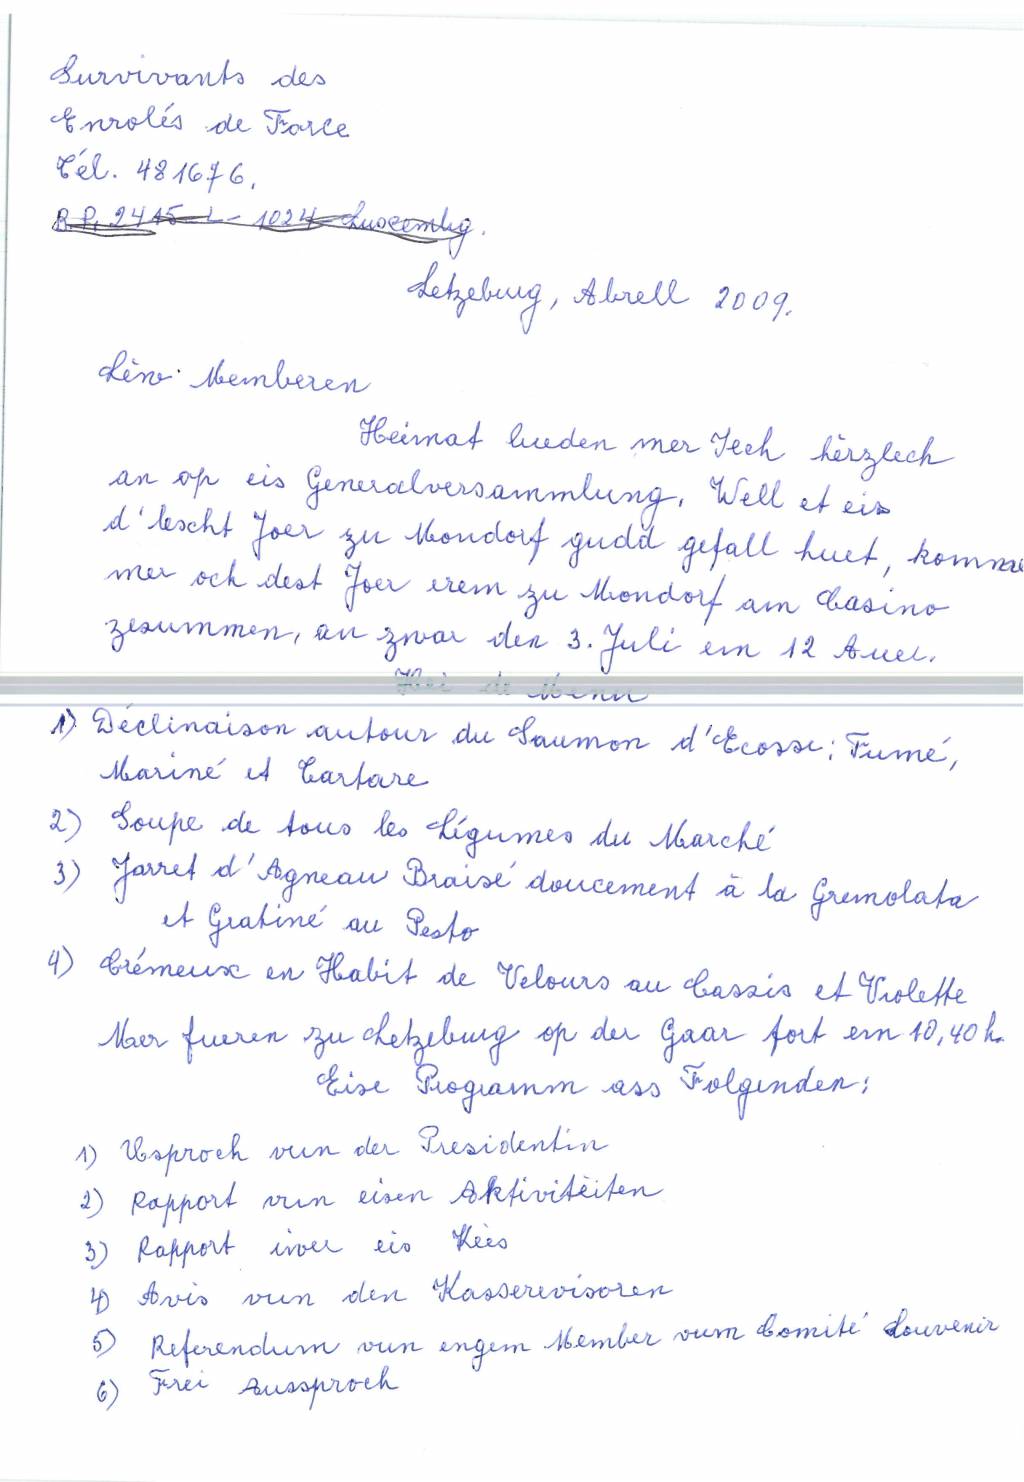 Survivants des
Enrolés de Force
Tél. 481676.
B.P. 2415 L- 1024 Luxembg.
Letzeburg, Abrell 2009.
Lèiw Memberen
Heimat lueden mer Iech hèrzlech
an op eis Generalversammlung. Well et eis
d'lescht Joer zu Mondorf gudd gefall huet, komme
mer och dest Joer erem zu Mondorf am Casino
zesummen, an zwar den 3. Juli em 12 Auer.
Hei de Menu
1) Déclinaison autour du Saumon d'Ecosse: Fumé,
Mariné et Tartare
2) Soupe de tous les Légumes du Marché
3) Jarret d'Agneau Braisé doucement à la Gremolata
et Gratiné au Pesto
4) Crémeux en Habit de Velours au Cassis et Violette
Mer fueren zu Letzeburg op der Gaar fort em 10,40 h.
Eise Programm ass Folgenden:
1) Usproch vun der Presidentin
2) Rapport vun eisen Aktivitèiten
3) Rapport iwer eis Kèes
4) Avis vun den Kasserevisoren
5) Referendum vun engem Member vum Comité Souvenir
6) Frei Aussproch